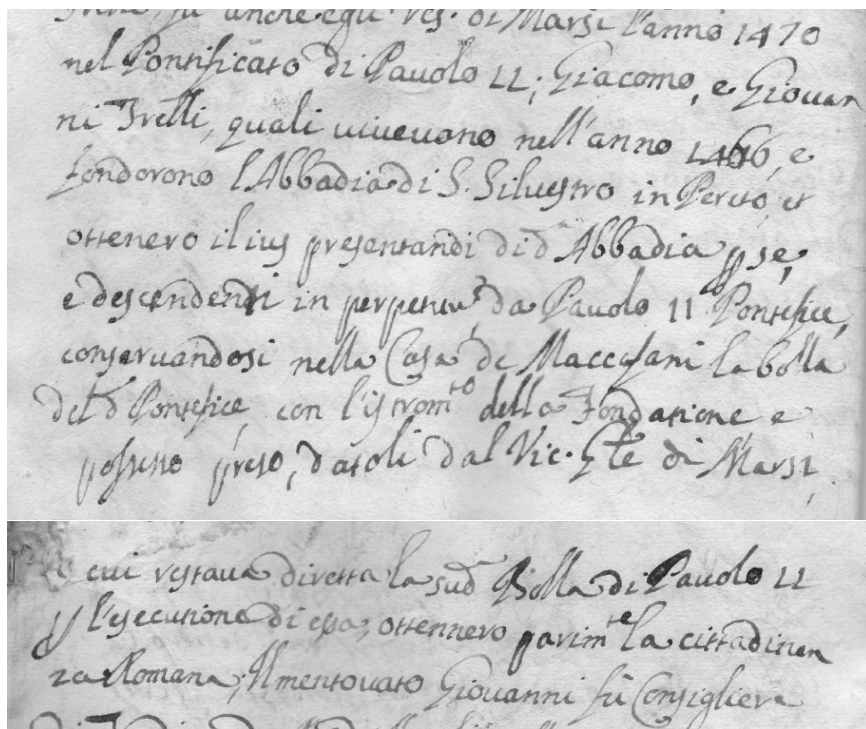 fù anche egli Ves. di Marsi l'anno 1470
nel Pontificato di Pauolo II; Giacomo, e Giouan
ni Frelli, quali uiueuono nell'anno 1466, e
fondorono l'Abbadia di S. Siluestro in Pereto, et
ottenero il ius presentandi di d Abbadia p se,
e descendenti in perpetuū, da Pauolo II Pontefice,
conseruandosi nella Casa de Maccafani la bolla
del d Pontefice, con l'istromto della Fondatione e
possesso preso, datoli dal Vic. Gle di Marsi,
cui restaua diretta la sud Bolla di Pauolo II
p l'esecutione di essa, ottennero parimte la cittadinan
za Romana; Il mentouato Giouanni fù Consigliere